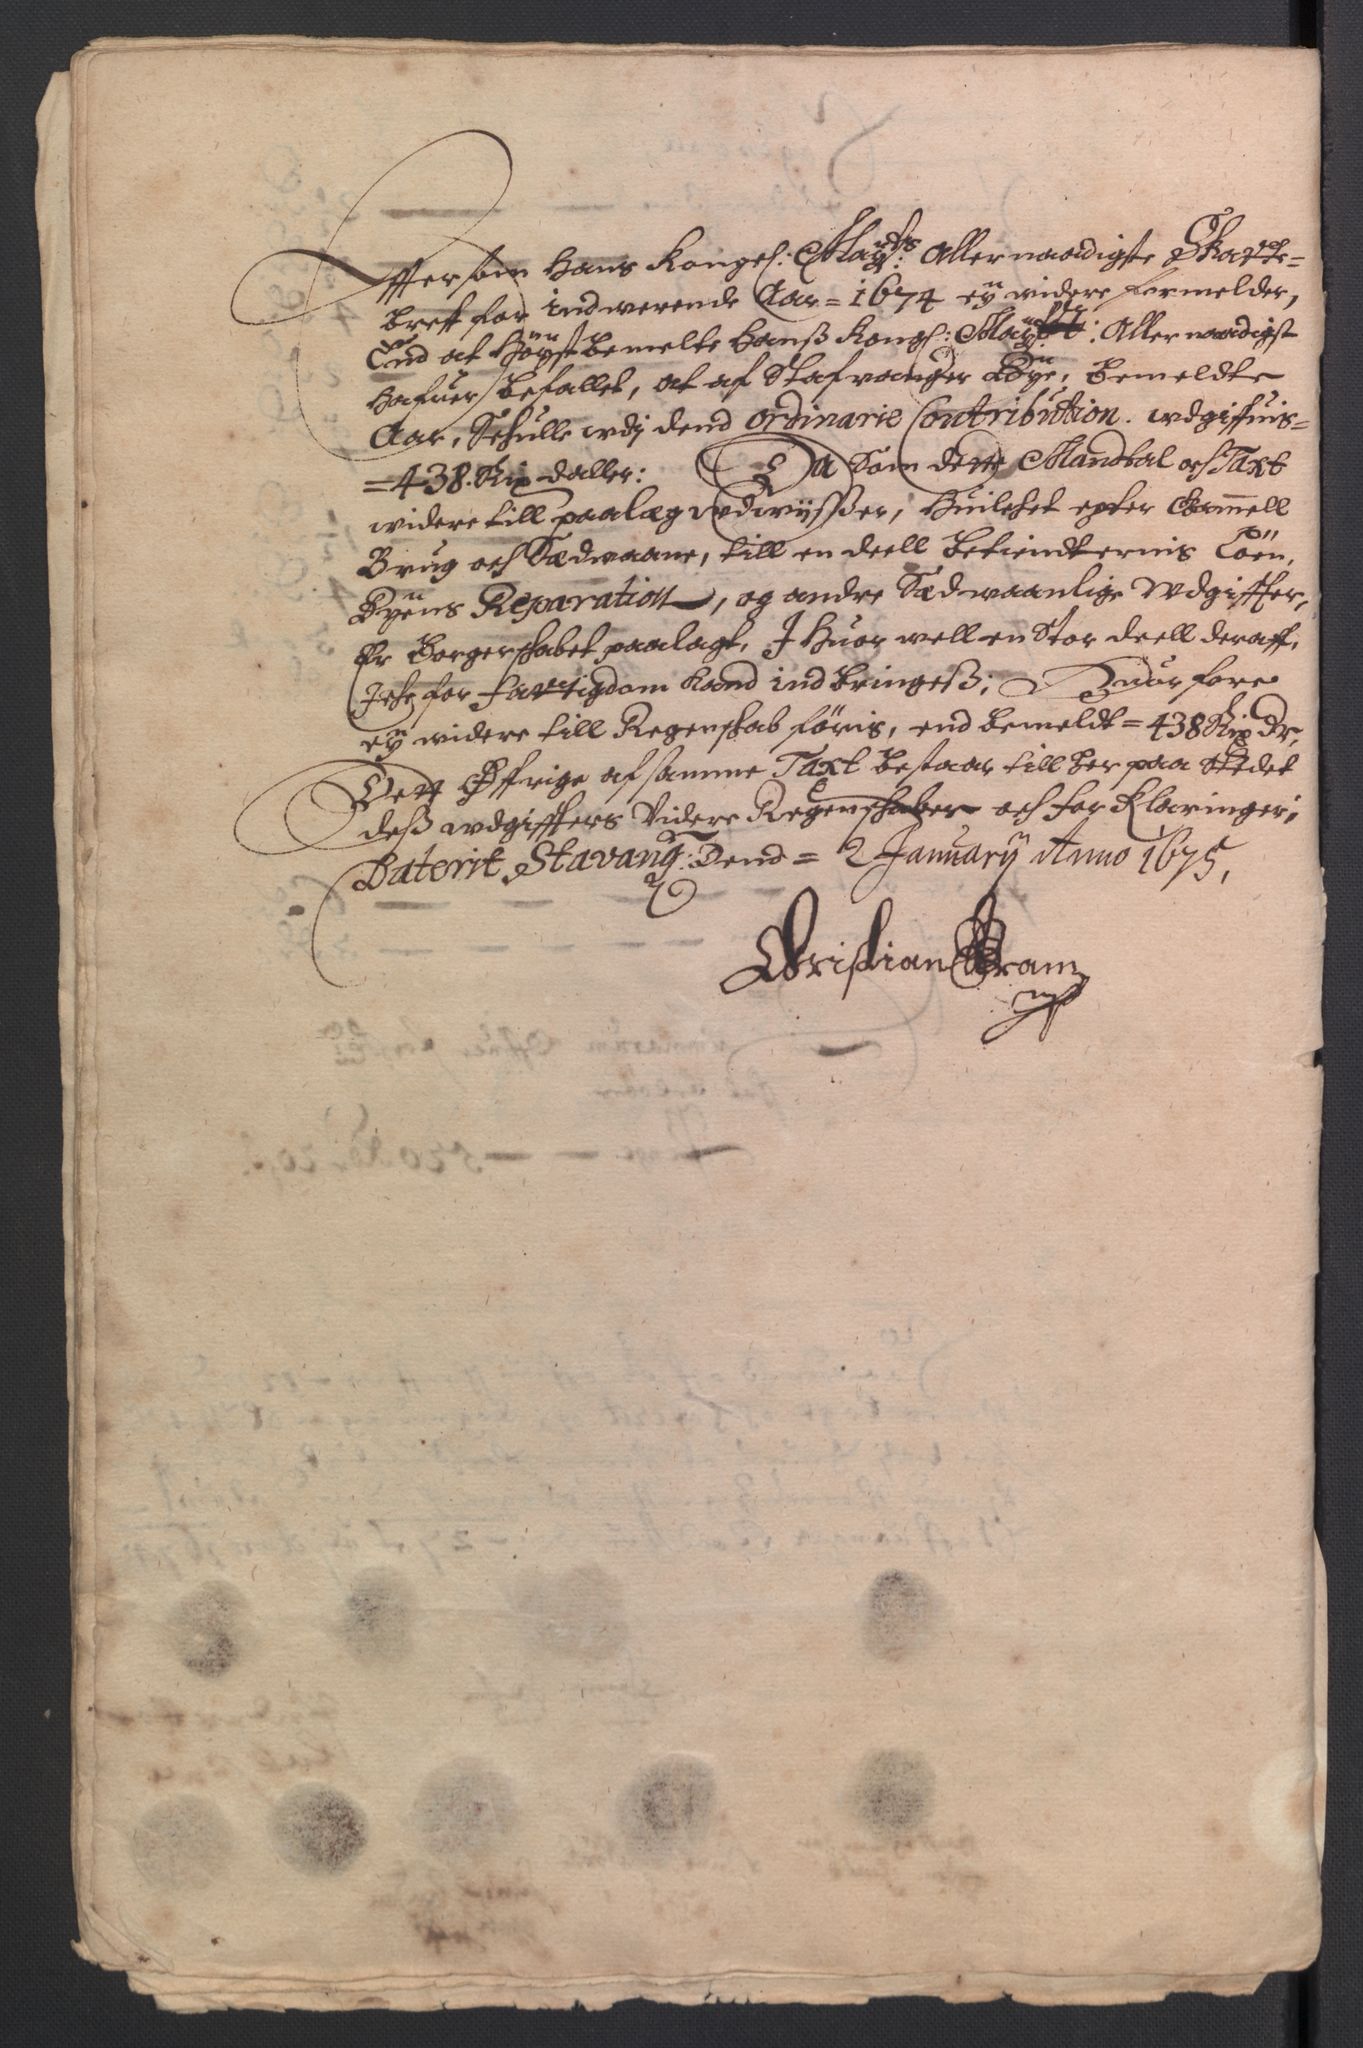 Effter som Hans Kongel: Mayts: Aller naadigste Skatte=
bref for indwerende Aar = 1674 eÿ widere formelder,
End at Höÿst bemelte Hanß Kongl: Maÿtt: Aller naadigst
Hafuer befallet, at af Stafvanger Bÿe, bemeldte
Aar, Schulle wdj dend ordinarie Contribution. wdgiffuis=
=438. Rix daller: Da Som dette Mandtal och Taxt
widere till paalæg wdwÿsser, Huilchet epter Gamell
Brug och Sædwaane, till en deell betiendternis Löen,
Bÿens Reparation, og andre Sædwaanlige Wdgiffter,
Er Borgerskabet paalagt, I Huor well en Stor deell deraff,
Iche for fattigdom kand indbringeß; Huorfore
eÿ widere till Regenskab föris, end bemeldt = 438 Rix Dr,
Dett Öffrige af samme Taxt bestaar till her paa Stedet
deß wdgiffters Videre Regenskaber och for Klaringer;
Daterit Stavang: Dend = 2 Januarÿ Anno 1675,
Christian Bram